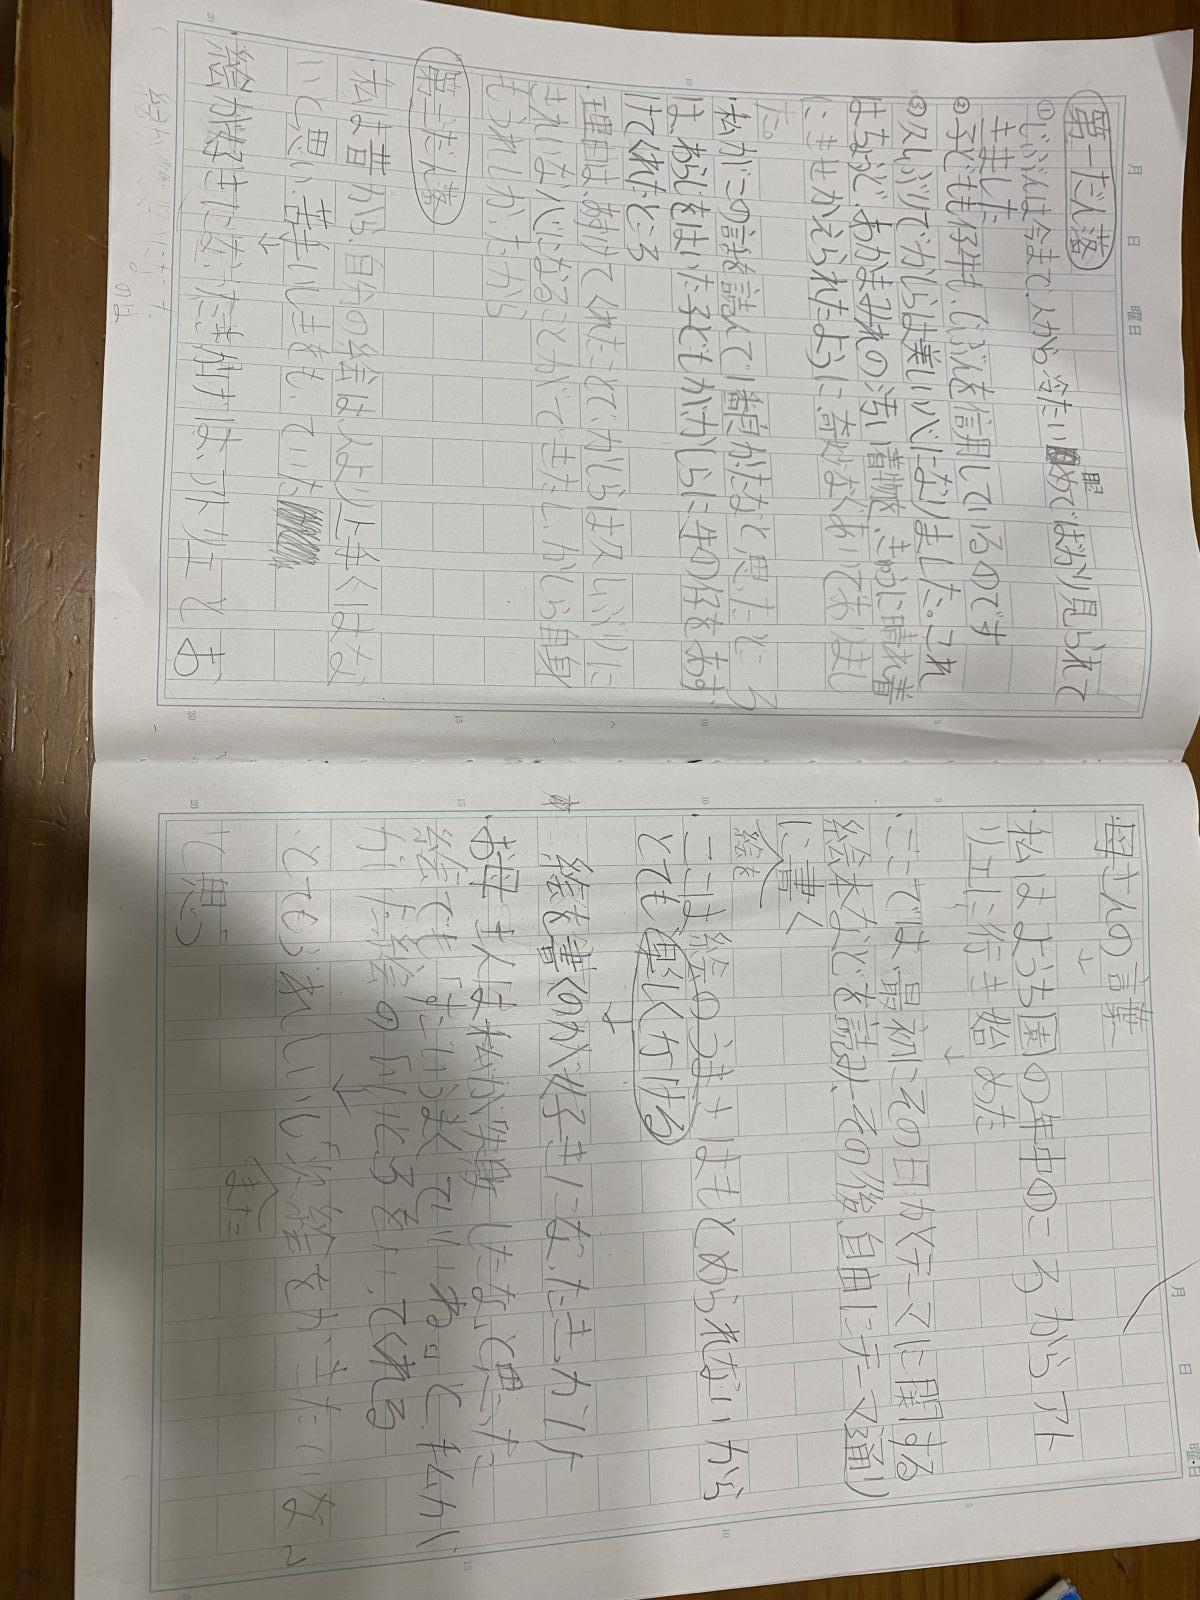 第一だん落
①じぶんは今まで人から冷たい眼めでばかり見られて
きました
②子ども仔牛も、じぶんを信用しているのです
③久しぶりでからは美しい心になりました。これ
はちょうど、あかまみれの汚い着物を、きゅうに晴れ着
にきせかえられたように、奇妙なぐあいでありまし
た。
・私がこの話を読んで、印象かたなと思ったところ
は、わらじをはいた子どもがかしらに牛の仔をあず
けてくれたところ
・理由は、あずけてくれたことで、かしらは久しぶりに
きれいな心になることができたし、かしら自身
もうれしかったから
第二だん落
私は昔から、自分の絵は、人より上手くはな
いと思い、苦手いしきをもっていた
↓
絵が好きになったきっかけは、アトリエとお
母さんの言葉
↓
私はようち園の年中のころからアト
リエに行き始めた
↓
・ここでは、最初にその日かくテーマに関する
絵本などを読み、その後、自由にテーマ通り
に書く
絵を
・ここは絵のうまさはもとめられないから
とても楽しくかける
↓
絵を書くのが好きになったきっかけ
・お母さんは私が失敗したな、と思った
絵でも、「すごい上手くていいね!!」と、私が
かいた絵のいいところをいってくれる
↓
・とてもうれしいし、次絵をかきたいな
また
と思う